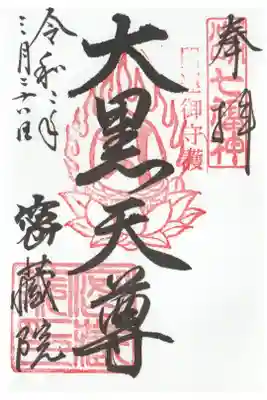 奉拝
七福神
御守護
大黒天尊
令和二年
三月二十八日
密蔵院